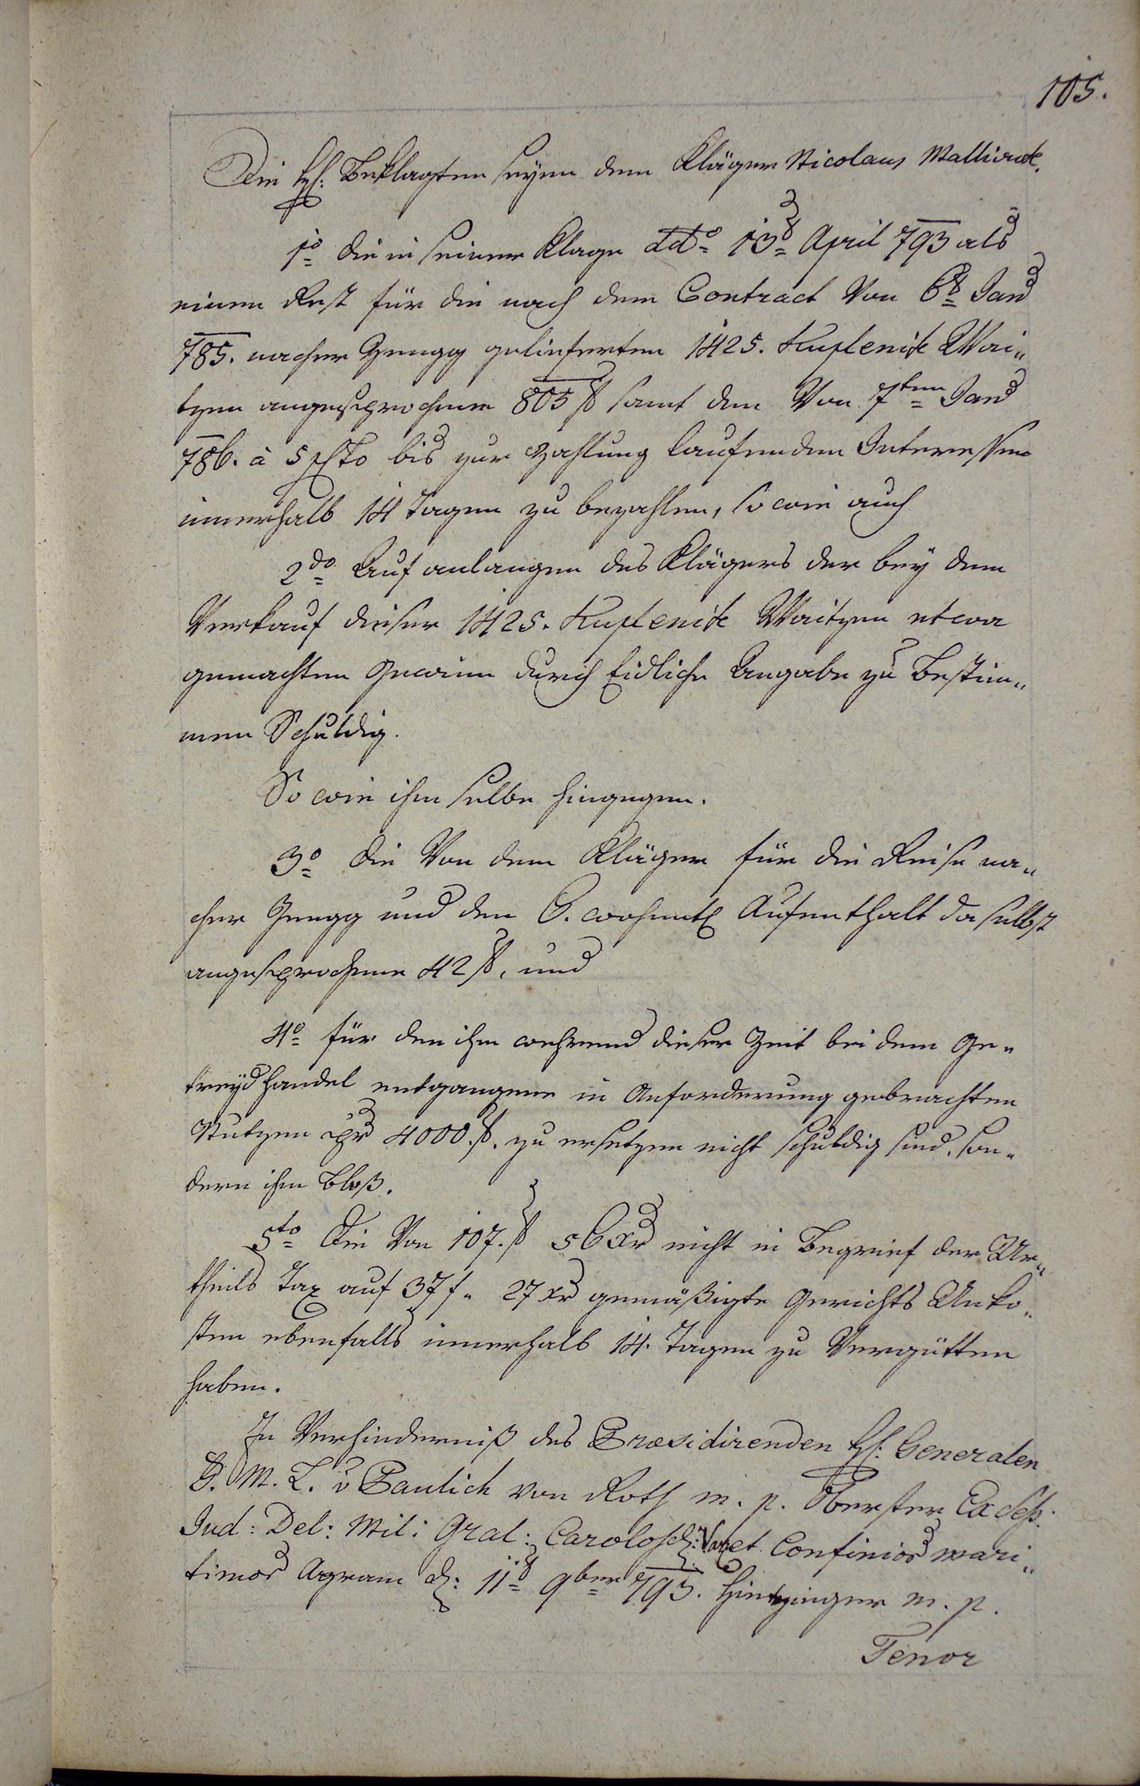 105.
Die H: Beklagten seyen dem Kläger Nicolaus Malliack.
1o die in seiner Klage ddo 13t April 793 als
einen Rest für die nach dem Contract Von 6t Janr
785. nacher Zengg gelieferten 1425. Kuplenik Wai„
tzen angesprochene 805 f samt den Von 7ten Janr
786. à 5 pCto bis zur Zahlung laufenden Interessen
innerhalb 14 Tagen zu bezahlen, so wie auch
2do Auf anlangen des Klägers der bey dem
Verkauf dieser 1425. Kuplenik Waitzen etwa
gemachten Gewinn durch Eidliche Angabe zu Bestim„
men Schuldig.
So wie ihm selbe hingegen.
3o die Von dem Kläger für die Reise na„
cher Zengg und den 6. wochentl Aufenthalt daselbst
angesprochene 42 f, und
4o für den ihm wehrend dieser Zeit bei dem Ge„
treydhandel entgangene in Anforderung gebrachten
Nutzen pr 4000 f. zu ersetzen nicht schuldig sind, son„
dern ihm bloß.
5to Die Von 107. f 56 xr nicht in Begrief der Ur„
theils Tax auf 37 f„ 27 xr gemäßigte Gerichts Unko„
sten ebenfalls innerhalb 14. Tagen zu Vergütten
haben.
In Verhinderniß des Præsidirenden H: Generalen
F. M. L. v Paulich von Roth m. p. Oberster Ex Cess:
Jud: Del: Mil: Gral: Carolost: Var: et Confinior mari„
timor Agram d: 11t 9ber 793. Hintzinger m. p.
Tenor